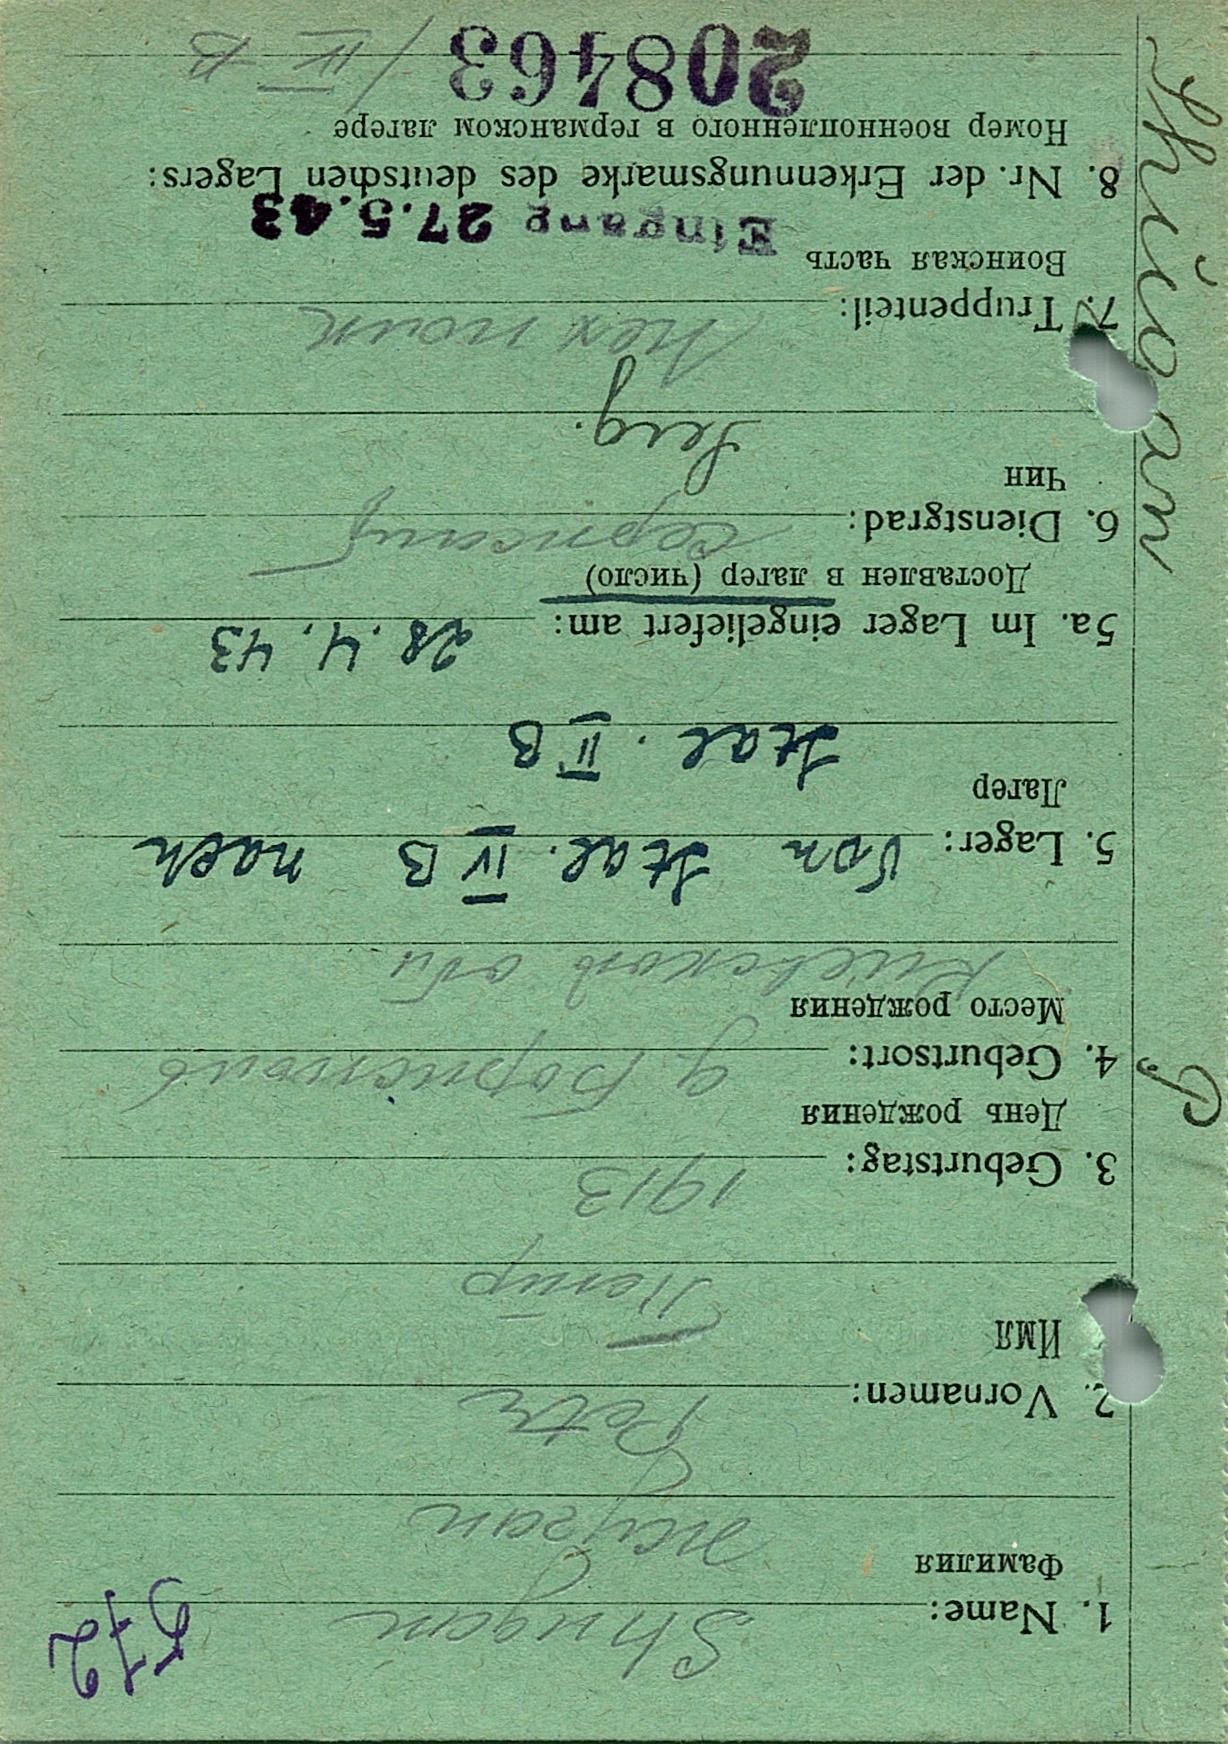 572
1. Name: Shugan
Фамилия
Жуган
2. Vornamen: Petr
Имя
Петр
3. Geburtstag: 1913
День рождения
4. Geburtsort: д
Место рождения
Киевской обл.
5. Lager: Von Stal. IV B nach
Лагер
Stal. II B
5a. Im Lager eingeliefert am: 28. 4. 43
Доставлен в лагер (число)
6. Dienstgrad: Сержант
Чин
Serg.
7. Truppenteil: полк
Воинская часть
Eingang 27.5.43
8. Nr. der Erkennungsmarke des deutschen Lagers:
Номер военнопленного в германском лагере
208463 / IV B
P